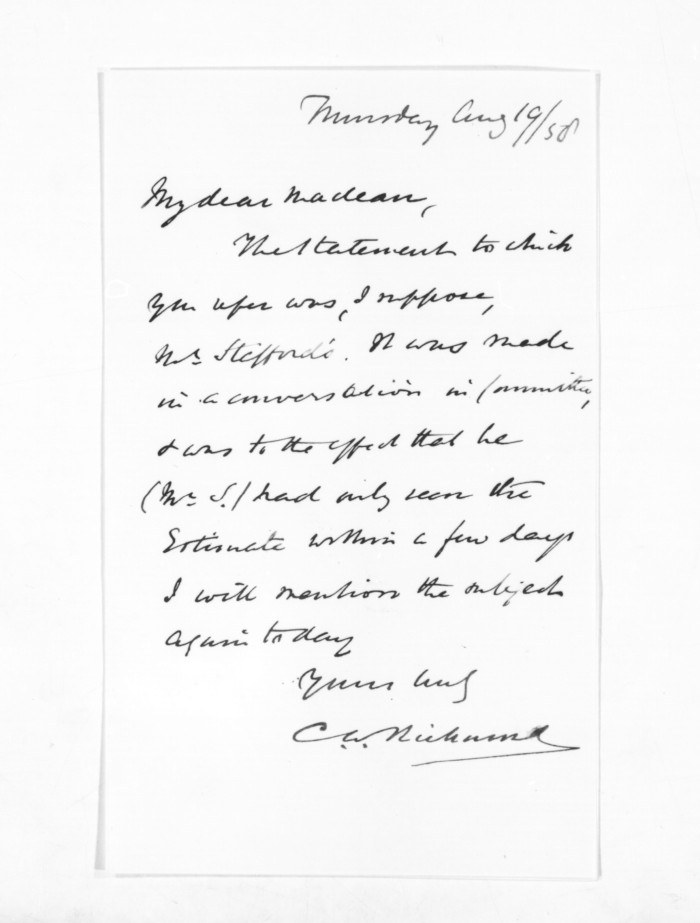 Thursday Aug 19/58
My dear Maclean,
The Statement to which
you refer was, I suppose,
Mr Stafford's. It was made
in a conversation in Committee,
& was to the effect that he
(Mr S.) had only seen the
Estimate within a few days
I will mention the subject
again to day
Yours truly
C. W. Richmond